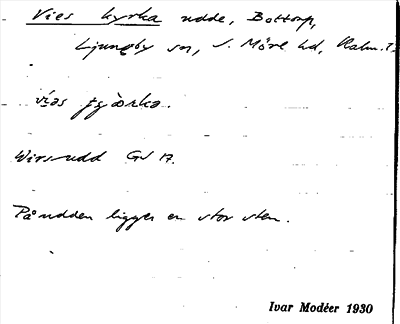 Vies kyrka udde, Bottorp,
Ljungby sn, S. Möre hd, Kalm. l.
víəs
Wirsudd GV 17.
På udden ligger en stor sten.
Ivar Modéer 1930